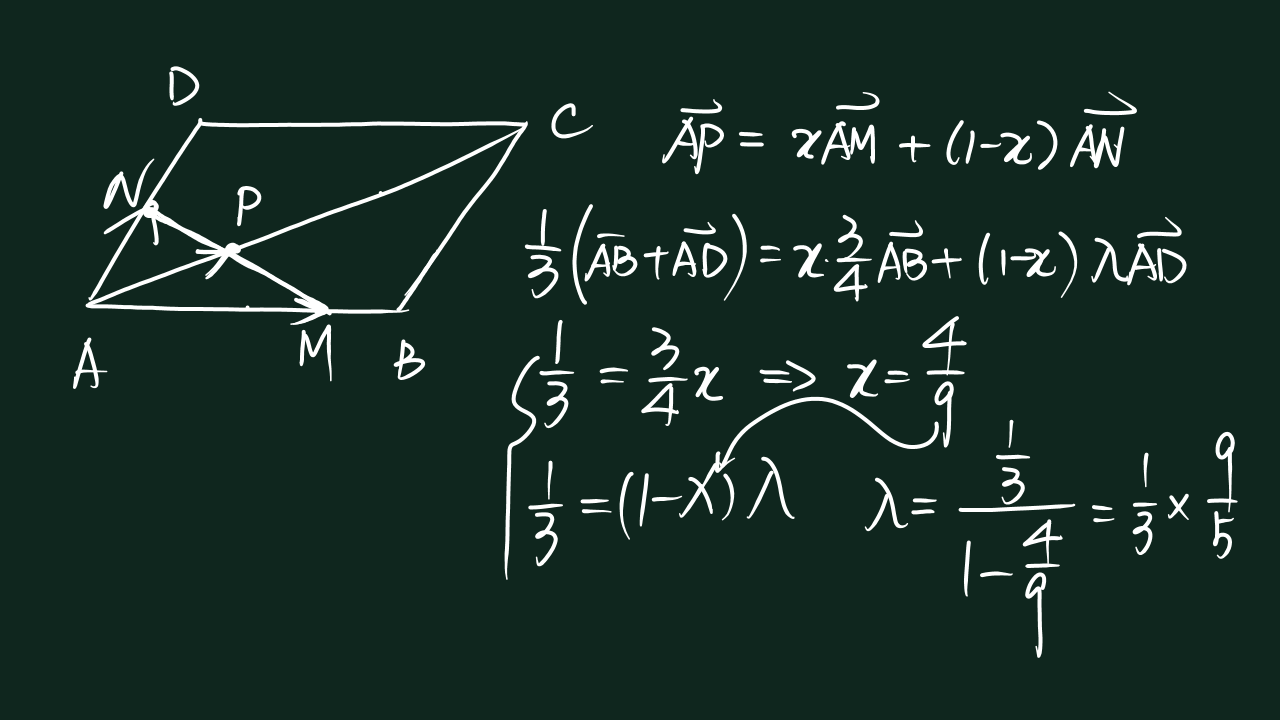 D
C
N
P
A
M
B
$\overrightarrow{AP} = x\overrightarrow{AM} + (1-x)\overrightarrow{AN}$
$\frac{1}{3}(\overrightarrow{AB}+\overrightarrow{AD}) = x \cdot \frac{3}{4}\overrightarrow{AB} + (1-x)\lambda\overrightarrow{AD}$
$\frac{1}{3} = \frac{3}{4}x \Rightarrow x = \frac{4}{9}$
$\frac{1}{3} = (1-x)\lambda \quad \lambda = \frac{\frac{1}{3}}{1-\frac{4}{9}} = \frac{1}{3} \times \frac{9}{5}$